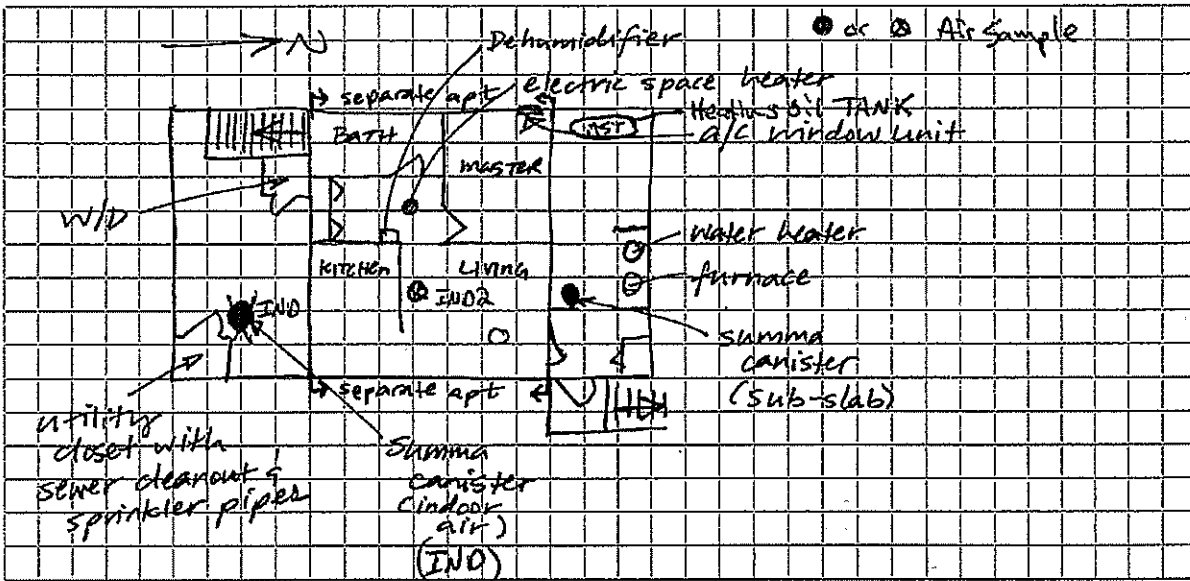 N
● or ⊗ Air Sample
Dehumidifier
electric space heater
separate apt
Heating Oil TANK
a/c window unit
BATH
MASTER
W/D
KITCHEN
LIVING
IND2
IND
water heater
furnace
summa
canister
(sub-slab)
separate apt
utility
closet with
sewer cleanout &
sprinkler pipes
Summa
canister
(indoor
air)
(IND)